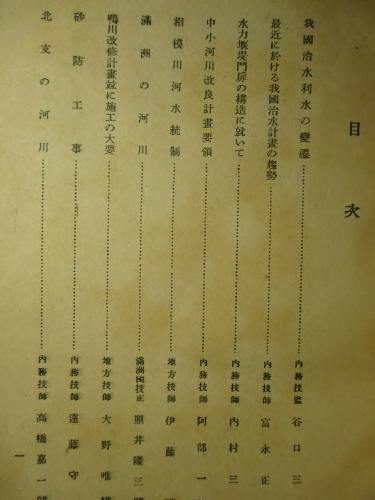 目次
我國治水利水の變遷……内務技監 谷口三
最近に於ける我國治水計畫の趨勢……内務技師 富永正
水力堰堤門扉の構造に就いて……内務技師 内村三
中小河川改良計畫要領……内務技師 阿部一
相模川河水統制……地方技師 伊藤
滿洲の河川……滿洲國技正 照井隆三
鴨川改修計畫竝に施工の大要……地方技師 大野唯
砂防工事……内務技師 遠藤守
北支の河川……内務技師 高橋嘉一
一